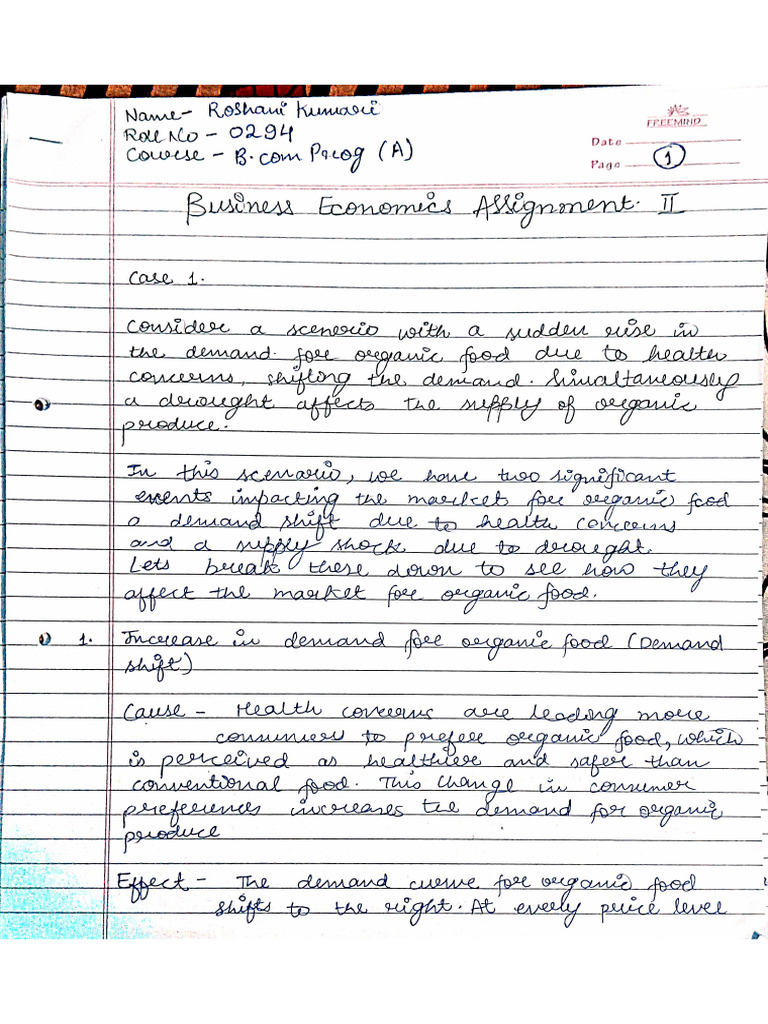 Name- Roshani Kumari
Roll No - 0294
Course - B.com Prog (A)
FREEMIND
Date
Page 1
Business Economics Assignment. II
Case 1.
Consider a scenerio with a sudden rise in
the demand for organic food due to health
concerns, shifting the demand. Simultaneously
a drought affects the supply of organic
produce.
In this scenario, we have two significant
events impacting the market for organic food
a demand shift due to health concerns
and a supply shock due to drought.
Lets break these down to see how they
affect the market for organic food.
1. Increase in demand for organic food (Demand
shift)
Cause - Health concerns are leading more
consumers to prefer organic food, which
is perceived as healthier and safer than
conventional food. This change in consumer
preferences increases the demand for organic
produce
Effect - The demand curve for organic food
shifts to the right. At every price level